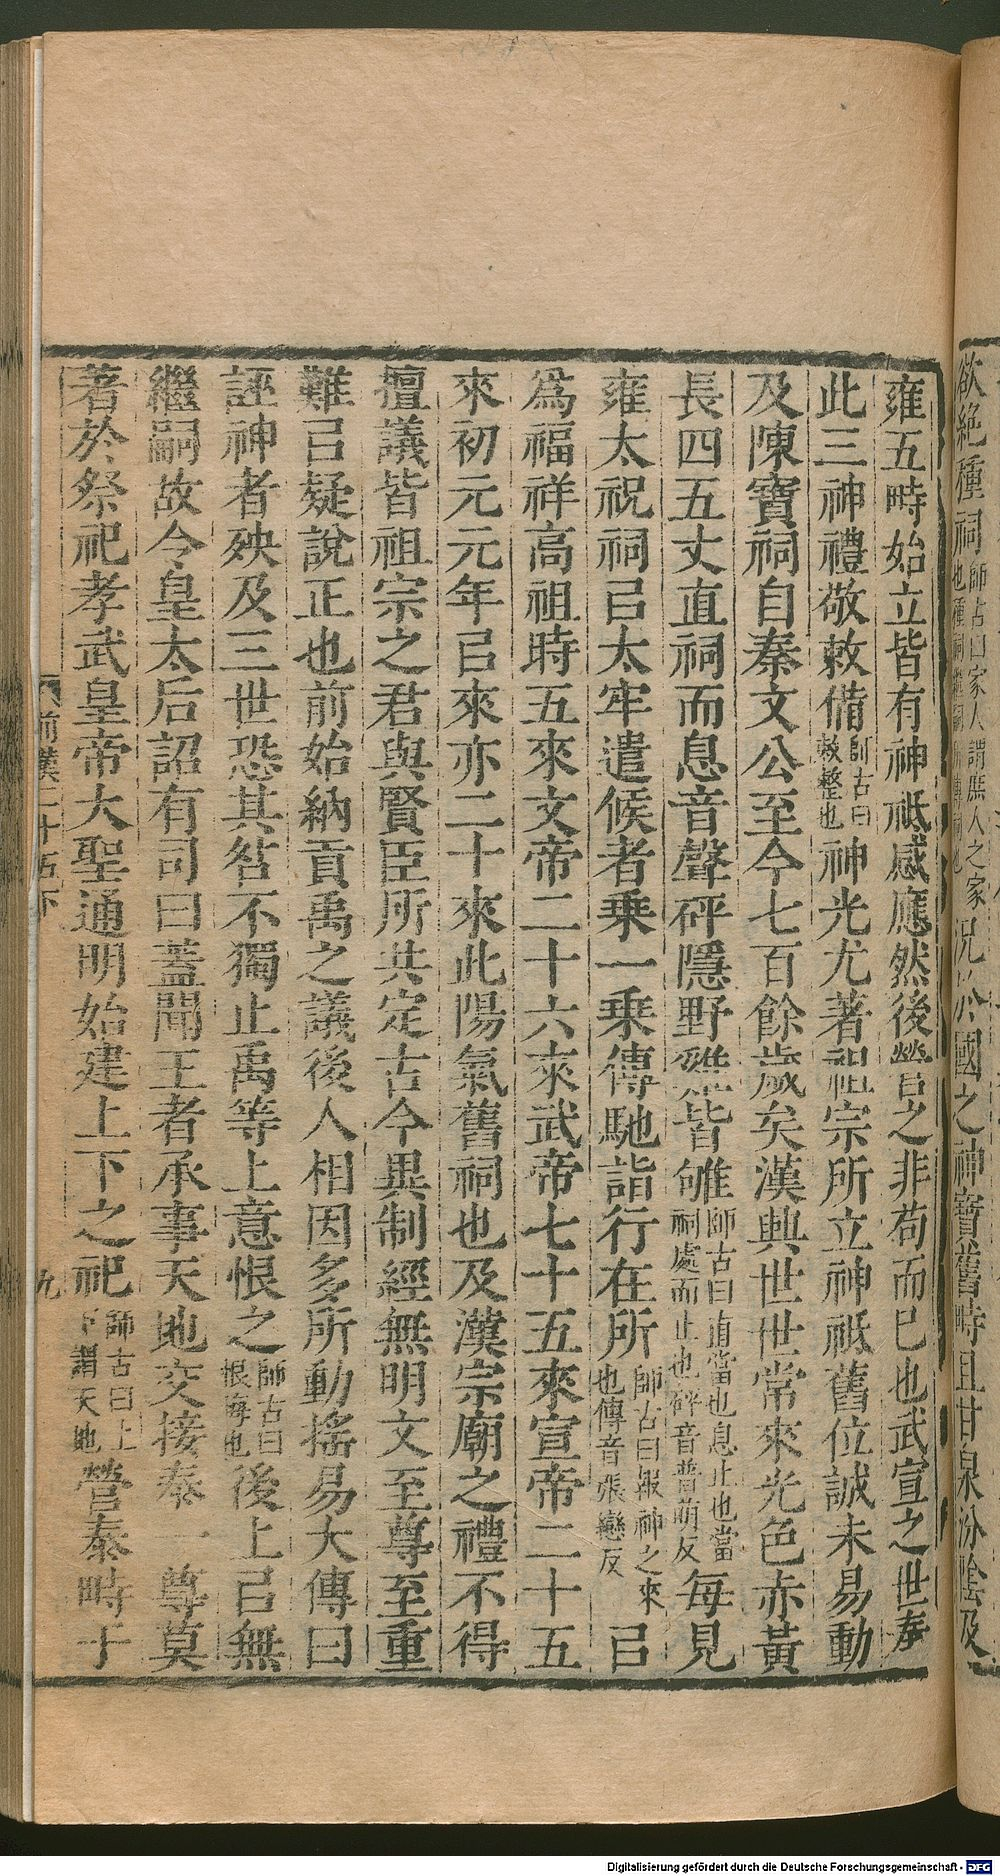 欲絶種祠師古曰家人謂庶人之家也種祠況於國之神寶舊畤且甘泉汾陰及
雍五畤始立皆有神祗感應然後營之非苟而已也武宣之世奉
此三神禮敬敕備師古曰敕整也神光尤著祖宗所立神祗舊位誠未易動
及陳寶祠自秦文公至今七百餘歲矣漢興世世常來光色赤黃
長四五丈直祠而息音聲砰隱野雞皆雊師古曰直當也息止也當祠處而止也砰音普萌反每見
雍太祝祠㠯太牢遣候者乗一乗傳馳詣行在所師古曰報神之來也傳音張戀反㠯
爲福祥高祖時五來文帝二十六來武帝七十五來宣帝二十五
來初元元年㠯來亦二十來此陽氣舊祠也及漢宗廟之禮不得
擅議皆祖宗之君與賢臣所共定古今異制經無明文至尊至重
難㠯疑說正也前始納貢禹之議後人相因多所動搖易大傳曰
誣神者殃及三世恐其咎不獨止禹等上意恨之師古曰恨悔也後上㠯無
繼嗣故令皇太后詔有司曰蓋聞王者承事天地交接泰一尊莫
著於祭祀孝武皇帝大聖通明始建上下之祀師古曰上下謂天地營泰畤于
前漢二十五下
九
Digitalisierung gefördert durch die Deutsche Forschungsgemeinschaft - DFG